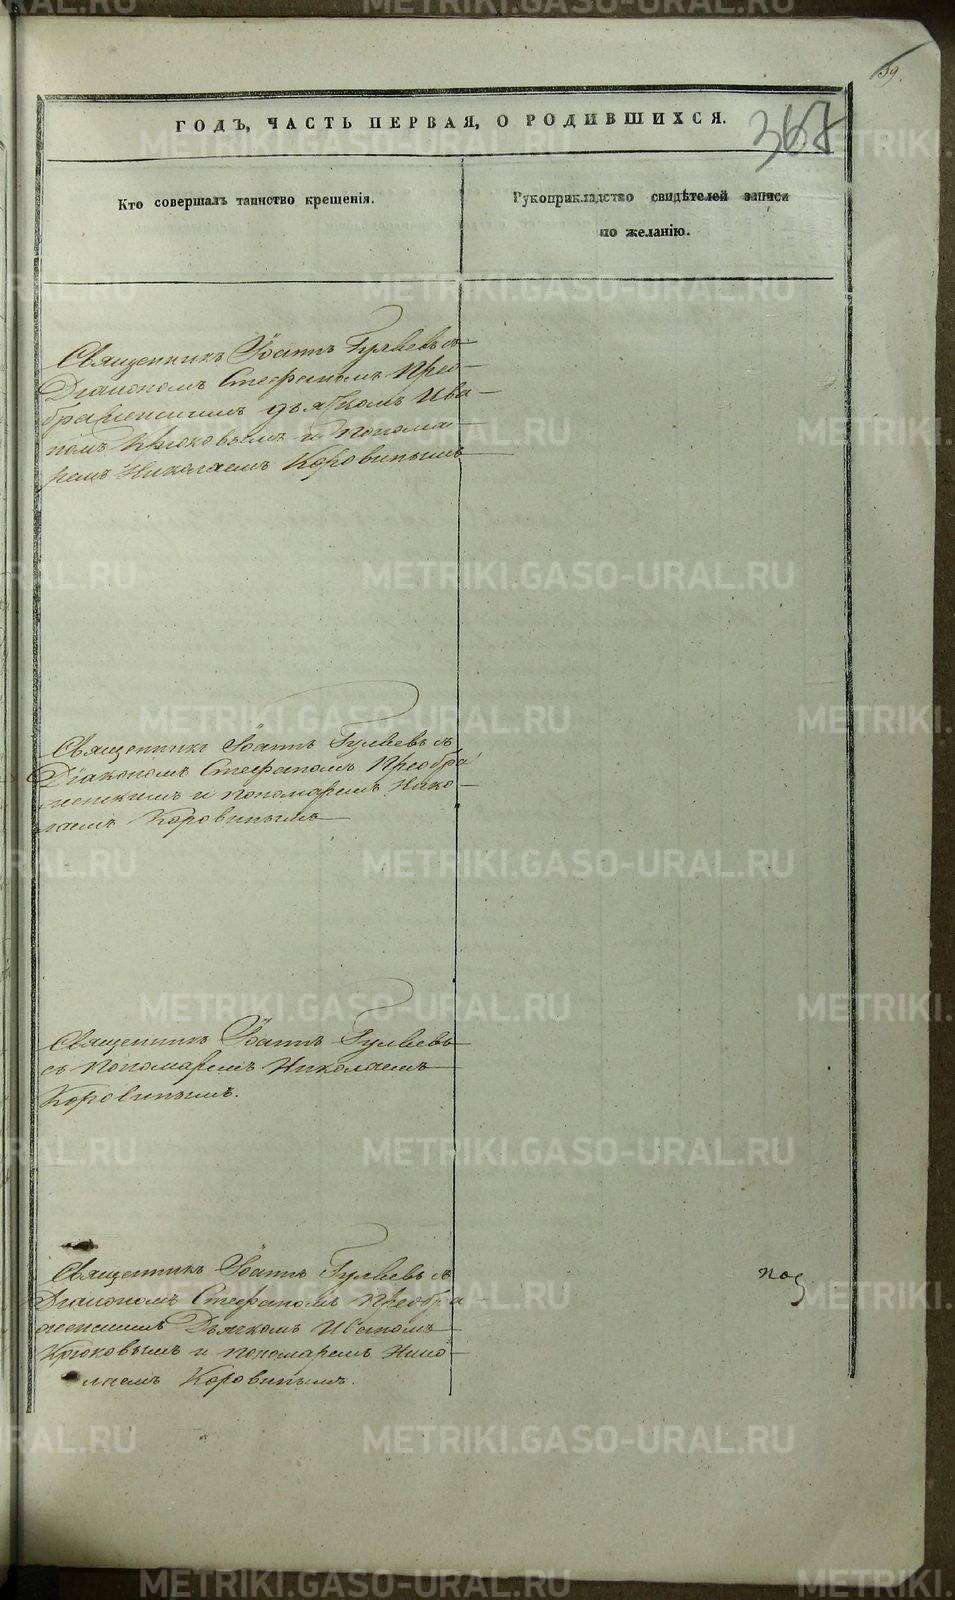 59.
367
ГОДЪ, ЧАСТЬ ПЕРВАЯ, О РОДИВШИХСЯ.
Кто совершалъ таинство крещенія.
Рукоприкладство свидѣтелей записи
по желанію.
Священникъ Іоаннъ Гуляевъ съ
Діакономъ Стефаномъ Прео-
браженскимъ дьячкомъ Ива-
номъ Крюковымъ и понома-
ремъ Николаемъ Коровинымъ
Священникъ Іоаннъ Гуляевъ съ
Діакономъ Стефаномъ Преобра
женскимъ и пономаремъ Нико-
лаемъ Коровинымъ
Священникъ Іоаннъ Гуляевъ
съ пономаремъ Николаемъ
Коровинымъ.
Священникъ Іоаннъ Гуляевъ съ
Діакономъ Стефаномъ Преобра-
женскимъ Дьячкомъ Иваномъ
Крюковымъ и пономаремъ Нико-
лаемъ Коровинымъ.
METRIKI.GASO-URAL.RU